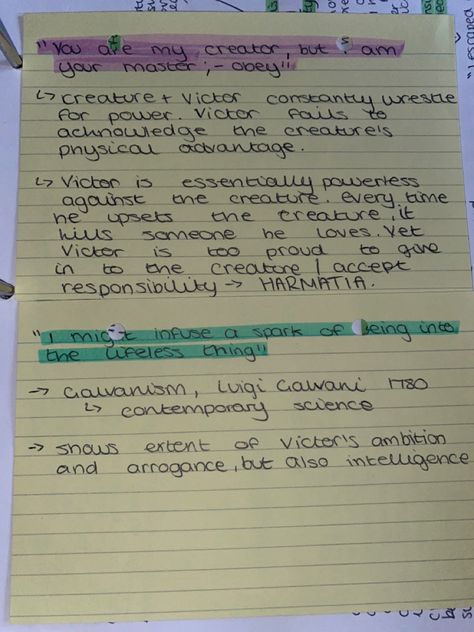 "You are my creator, but I am
your master; - obey!"
↳ creature + Victor constantly wrestle
for power. Victor fails to
acknowledge the creature's
physical advantage.
↳ Victor is essentially powerless
against the creature. Every time
he upsets the creature, it
kills someone he loves. Yet
Victor is too proud to give
in to the creature / accept
responsibility → HARMATIA.
"I might infuse a spark of being into
the lifeless thing"
→ Galvanism, Luigi Galvani 1780
↳ contemporary science
→ shows extent of Victor's ambition
and arrogance, but also intelligence